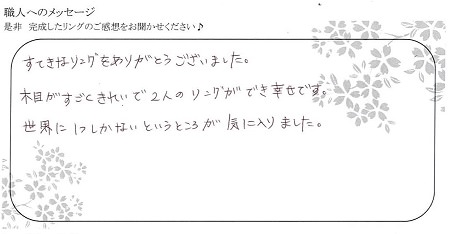 職人へのメッセージ
是非　完成したリングのご感想をお聞かせください♪
すてきなリングをありがとうございました。
木目がすごくきれいで2人のリングができ幸せです。
世界に1つしかないというところが気に入りました。